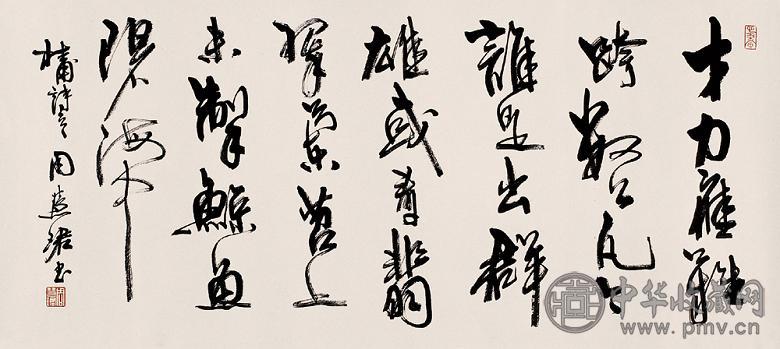 才力應難
跨數公凡今
誰是出群
雄或看翡
翠蘭苕上
未掣鯨魚
碧海中
杜甫詩 周慧珺書
中华收藏网
www.pmv.cn